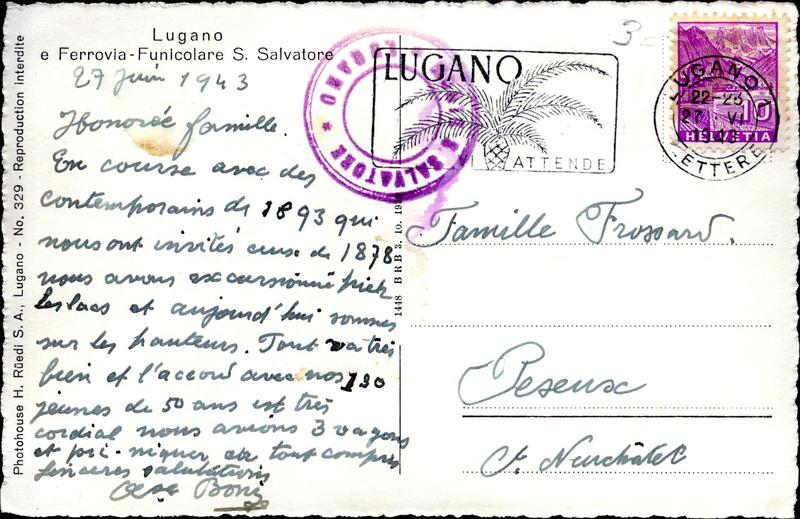 Lugano
e Ferrovia-Funicolare S. Salvatore
27 Juin 1943
Honorée famille.
En course avec des
contemporains de 1893 qui
nous ont invités ceux de 1878
nous avons excursionné hier
les lacs et aujourd'hui sommes
sur les hauteurs. Tout va très
bien et l'accord avec nos 130
jeunes de 50 ans est très
cordial nous avions 3 vagons
et pic-niquer etc tout compris
sincères salutations
Bonj
Photohouse H. Rüedi S. A., Lugano - No. 329 - Reproduction interdite
1448 BRB 3. 10. 19
LUGANO
S. SALVATORE
LUGANO
VI ATTENDE
LUGANO 1
22-23
27 VI
LETTERE
10
HELVETIA
3
Famille Frossard.
Peseux
Ct. Neuchâtel